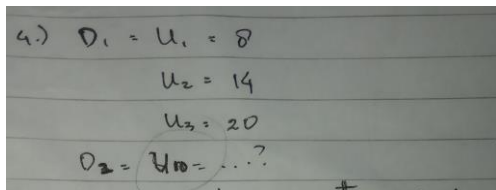 4.) D₁ = U₁ = 8
U₂ = 14
U₃ = 20
D₂ = U₁₀ = ...?